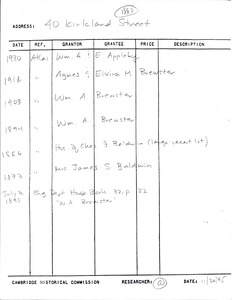 1883
ADDRESS: 40 Kirkland Street
DATE REF. GRANTOR GRANTEE PRICE DESCRIPTION
1930 Atlas Wm. & E Appleby
1916 " Agnes & Elvira M. Brewster
1903 " Wm A Brewster
1894 " Wm. A Brewster
1886 " Chas F Baldwin (large vacant lot)
1873 " Mrs. James S Baldwin
July 4 Eng. Dept House Book 32, p 22
1895 "W. A. Brewster"
CAMBRIDGE HISTORICAL COMMISSION RESEARCHER: DATE: 11/20/85